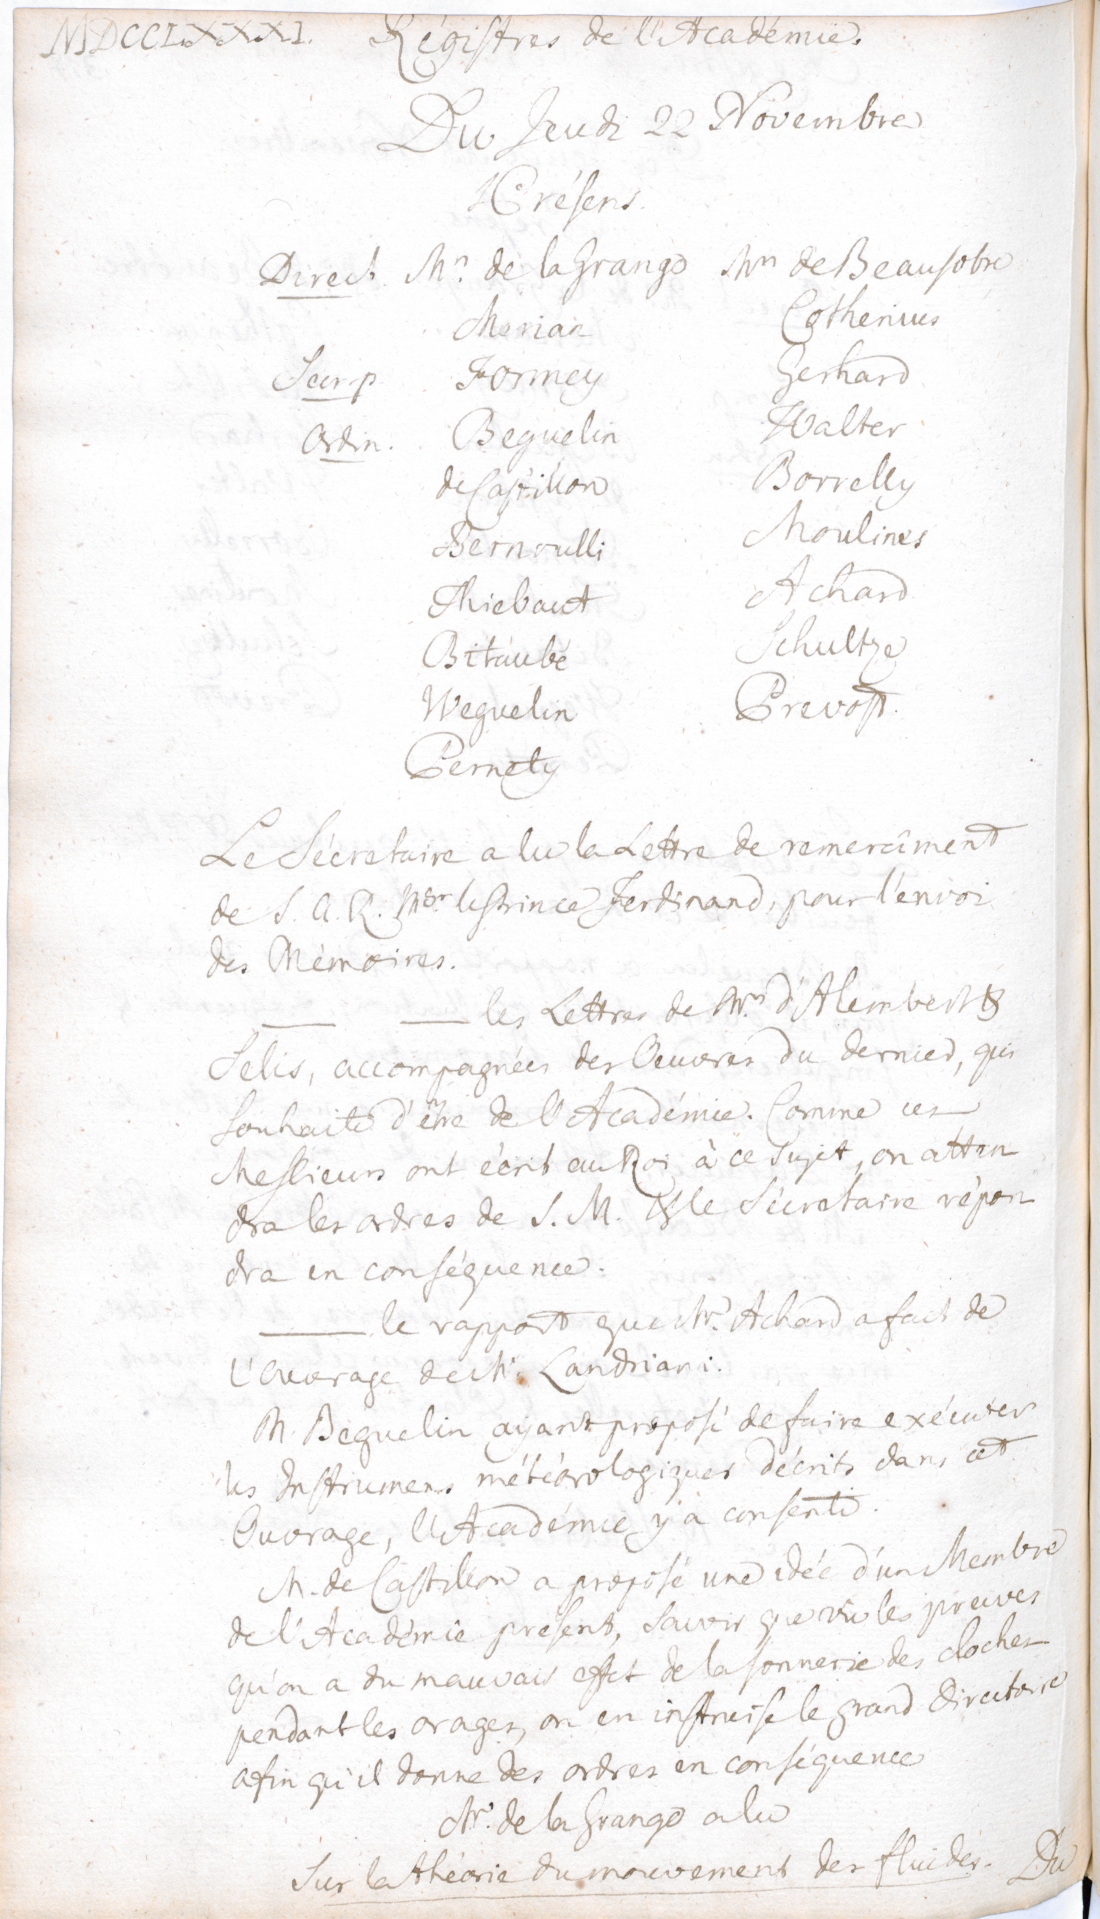 MDCCLXXXI. Régistres de l'Académie.
Du Jeudi 22 Novembre
Présens.
Direct. Mrs de la Grange Mrs de Beausobre
Merian Cothenius
Secr. p. Formey Gerhard
Ordin. Beguelin Walter
de Castillon Borrelly
Bernoulli Moulines
Thiebaut Achard
Bitaubé Schultze
Weguelin Prevost.
Pernety
Le Sécretaire a lu la Lettre de remercîment
de S. A. R. Mgr le Prince Ferdinand, pour l'envoi
des Mémoires.
— — les Lettres de Mrs d'Alembert &
Selis, accompagnées des Oeuvres du dernier, qui
souhaite d'être de l'Académie. Comme ces
Messieurs ont écrit au Roi à ce sujet, on atten
dra les ordres de S. M. & le Sécretaire répon
dra en conséquence.
— le rapport que Mr. Achard a fait de
l'Ouvrage de Mr. Landriani.
M. Beguelin ayant proposé de faire exécuter
les Instrumens météorologiques décrits dans cet
Ouvrage, l'Académie y a consenti.
M. de Castillon a proposé une idée d'un Membre
de l'Académie présent, savoir que vu les preuves
qu'on a du mauvais effet de la sonnerie des cloches
pendant les orages, on en instruise le grand Directoire
afin qu'il donne des ordres en conséquence
Mr. de la Grange a lu
Sur la théorie du mouvement des fluides. Du